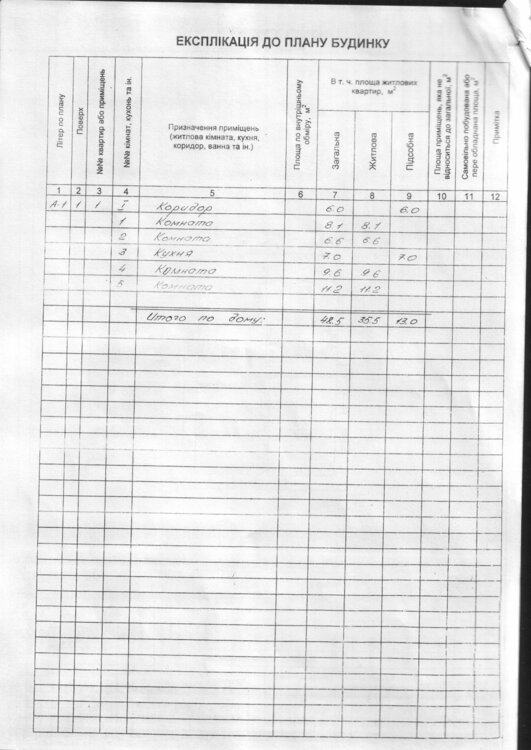 ЕКСПЛІКАЦІЯ ДО ПЛАНУ БУДИНКУ
Літер по плану
Поверх
№№ квартир або приміщень
№№ кімнат, кухонь та ін.
Призначення приміщень
(житлова кімната, кухня,
коридор, ванна та ін.)
Площа по внутрішньому
обміру, м²
В т. ч. площа житлових
квартир, м²
Загальна
Житлова
Підсобна
Площа приміщень, яка не
відноситься до загальної, м²
Самовільно побудована або
пере обладнана площа, м²
Примітка
1 2 3 4 5 6 7 8 9 10 11 12
А-1 1 1 I Коридор 6.0 6.0
1 Комната 8.1 8.1
2 Комната 6.6 6.6
3 Кухня 7.0 7.0
4 Комната 9.6 9.6
5 Комната 11.2 11.2
Итого по дому: 48.5 35.5 13.0